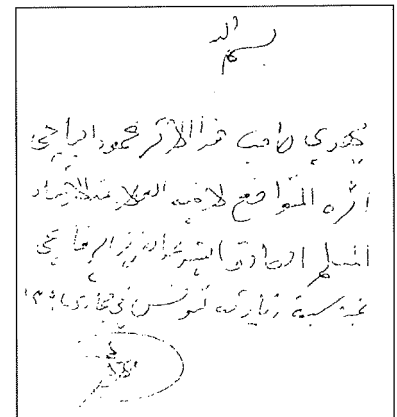 بسم الله
يهدي صاحب هذا الأثر محمود الباجي
أثره المتواضع لأخيه العلامة الأستاذ
المسلم الصادق السيد عبد العزيز الرفاعي
بمناسبة زيارته تونس في